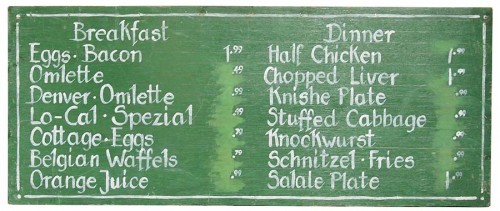 Breakfast
Eggs · Bacon 1.99
Omlette .49
Denver · Omlette .99
Lo-Cal · Spezial .99
Cottage · Eggs .79
Belgian Waffels .99
Orange Juice .49
Dinner
Half Chicken 1.99
Chopped Liver 1.99
Knishe Plate .99
Stuffed Cabbage .99
Knockwurst .99
Schnitzel · Fries .99
Salale Plate 1.99